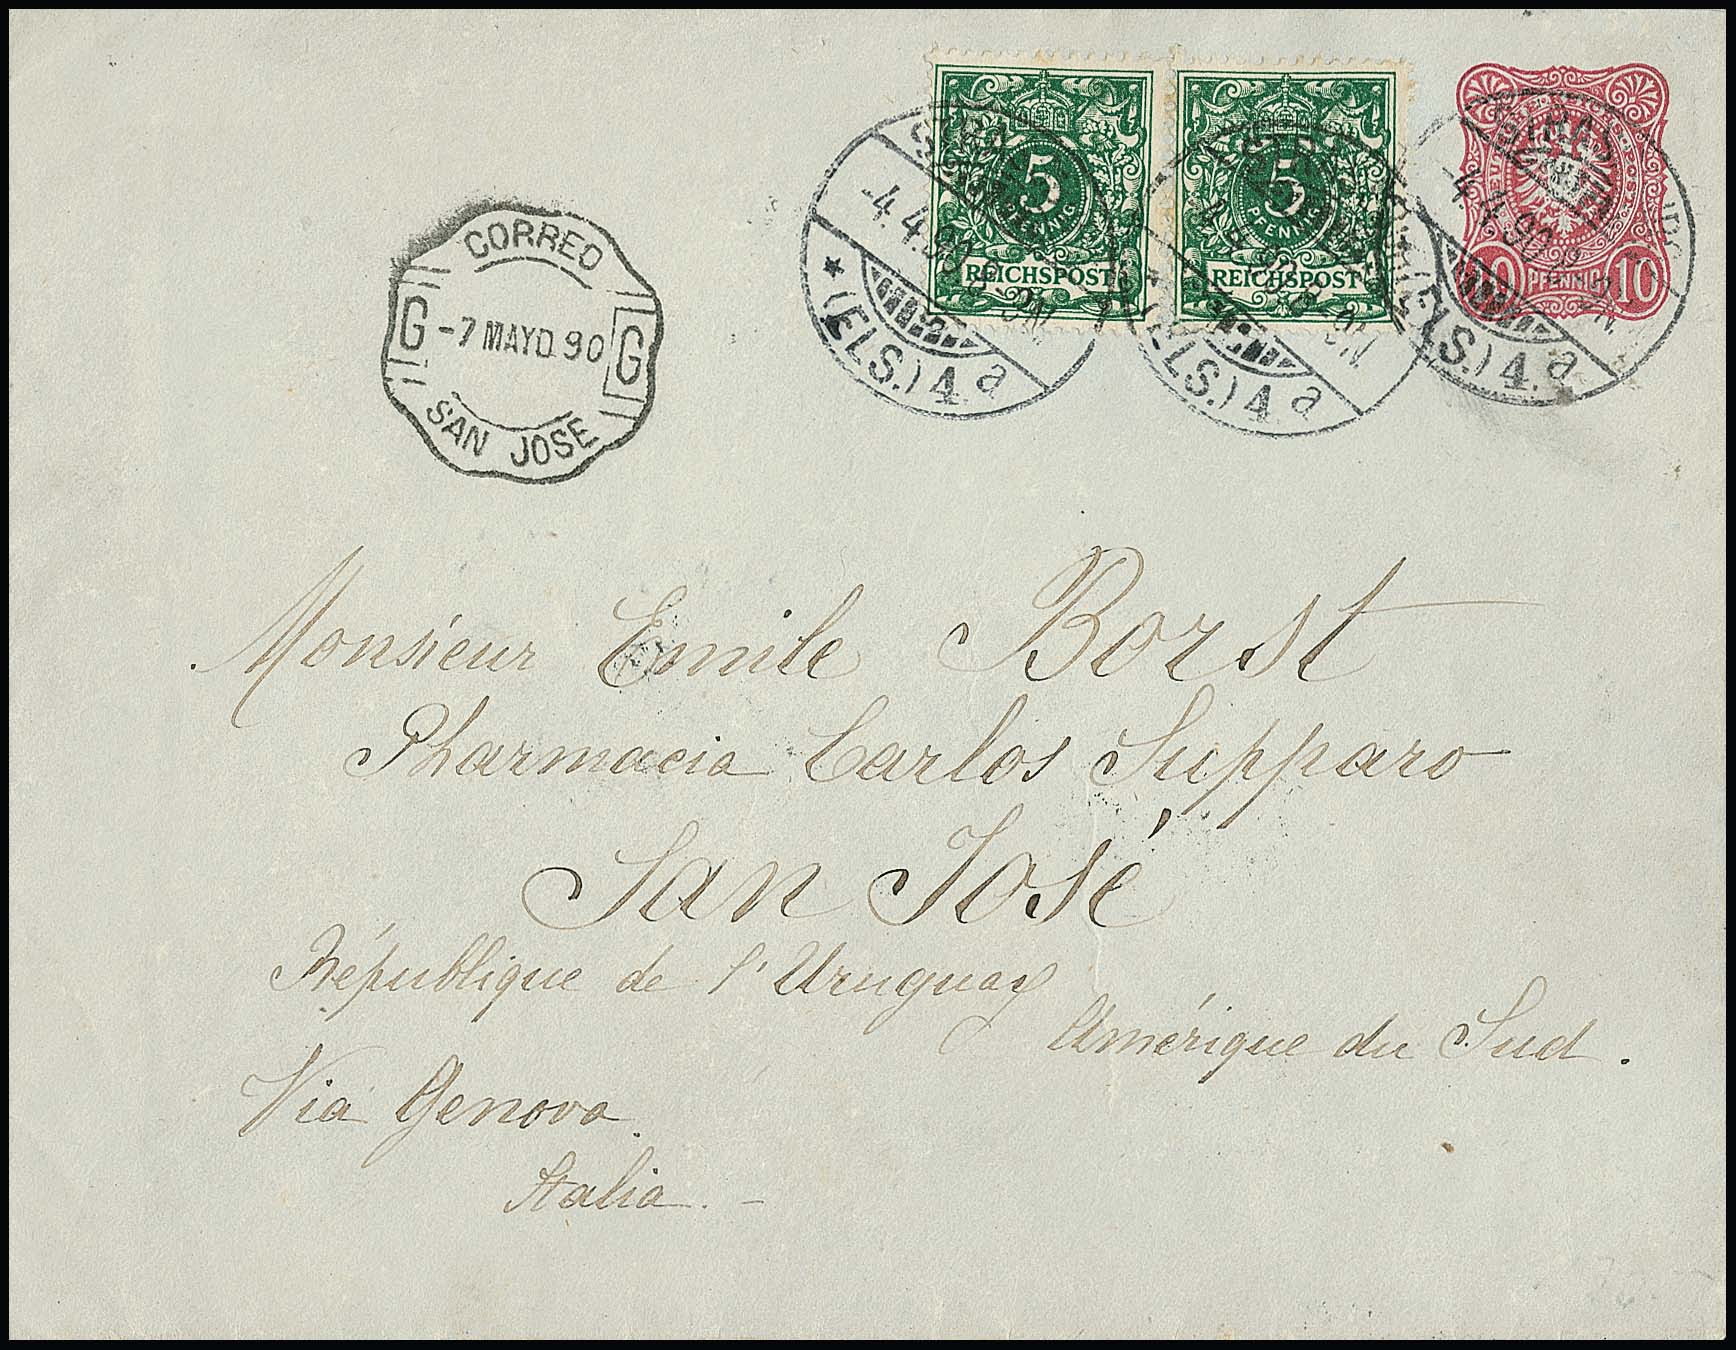 5
PFENNIG
REICHSPOST
5
PFENNIG
REICHSPOST
10 PFENNIG 10
-4.4.90
* (ELS.) 4. a
(ELS.) 4 a
4.4.90
(ELS.) 4. a
CORREO
G -7 MAYO.90 G
SAN JOSE
Monsieur Emile Borst
Pharmacia Carlos Supparo
San José
République de l'Uruguay
Amérique du Sud.
Via Genova.
Italia. -